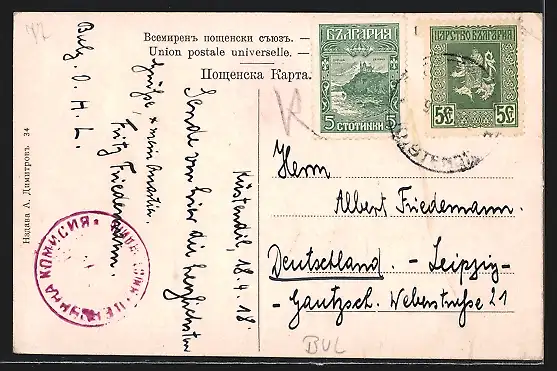 Всемиренъ пощенски съюзъ. —
Union postale universelle. —
Пощенска Карта.
Издава А. Димитровъ. 34
БЪЛГАРИЯ
5 СТОТИНКИ 5
ЦАРСТВО БЪЛГАРИЯ
5 5
Bulg. O. H. L.
Küstendil, 18.4.18.
Sende von hier die herzlichsten
Grüsse,
Fritz Friedemann.
КОМИСИЯ
Herrn
Albert Friedemann.
Deutschland. - Leipzig-
- Gautzsch. Weberstrasse 21
BUL